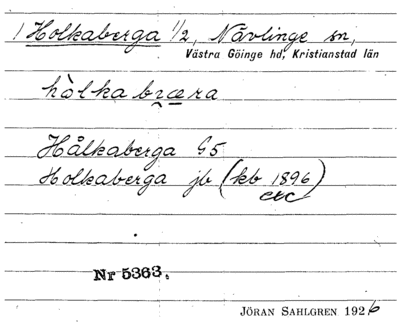 1 Holkaberga 1/2, Nävlinge sn,
Västra Göinge hd, Kristianstad län
hålkabræra
Hålkaberga G5
Holkaberga jb (kb 1896)
etc
Nr 5363.
JÖRAN SAHLGREN 1926